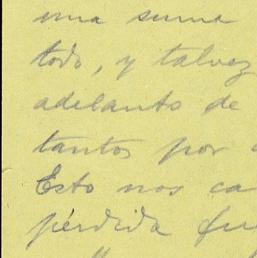 una suma
todo, y talvez
adelanto de
tantos por
Esto nos ca
pérdida fu